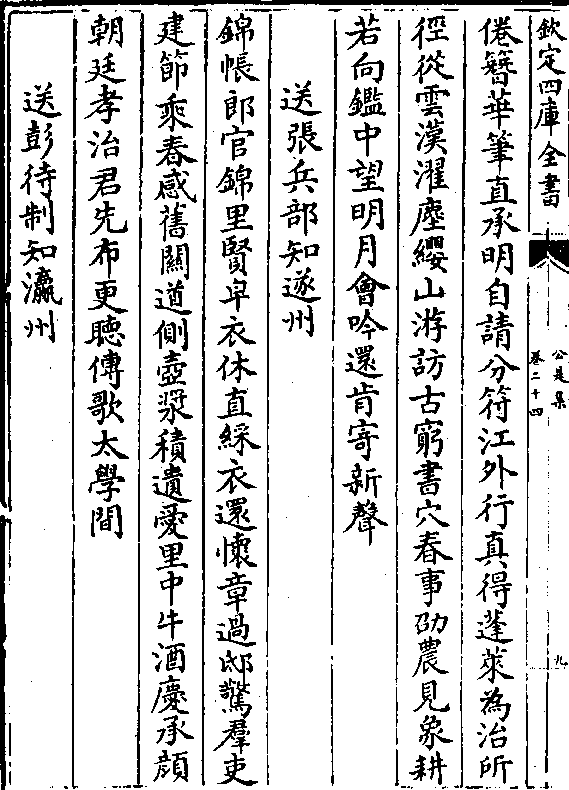 欽定四庫全書
公是集
卷二十四
九
倦簪華筆直承明自請分符江外行真得蓬萊為治所
徑從雲漢濯塵纓山游訪古窮書穴春事劭農見象耕
若向鑑中望明月會吟還肯寄新聲
送張兵部知遂州
錦帳郎官錦里賢皁衣休直綵衣還懷章過邸驚羣吏
建節乘春感舊關道側壺漿積遺愛里中牛酒慶承顔
朝廷孝治君先布更聽傳歌太學間
送彭待制知瀛州